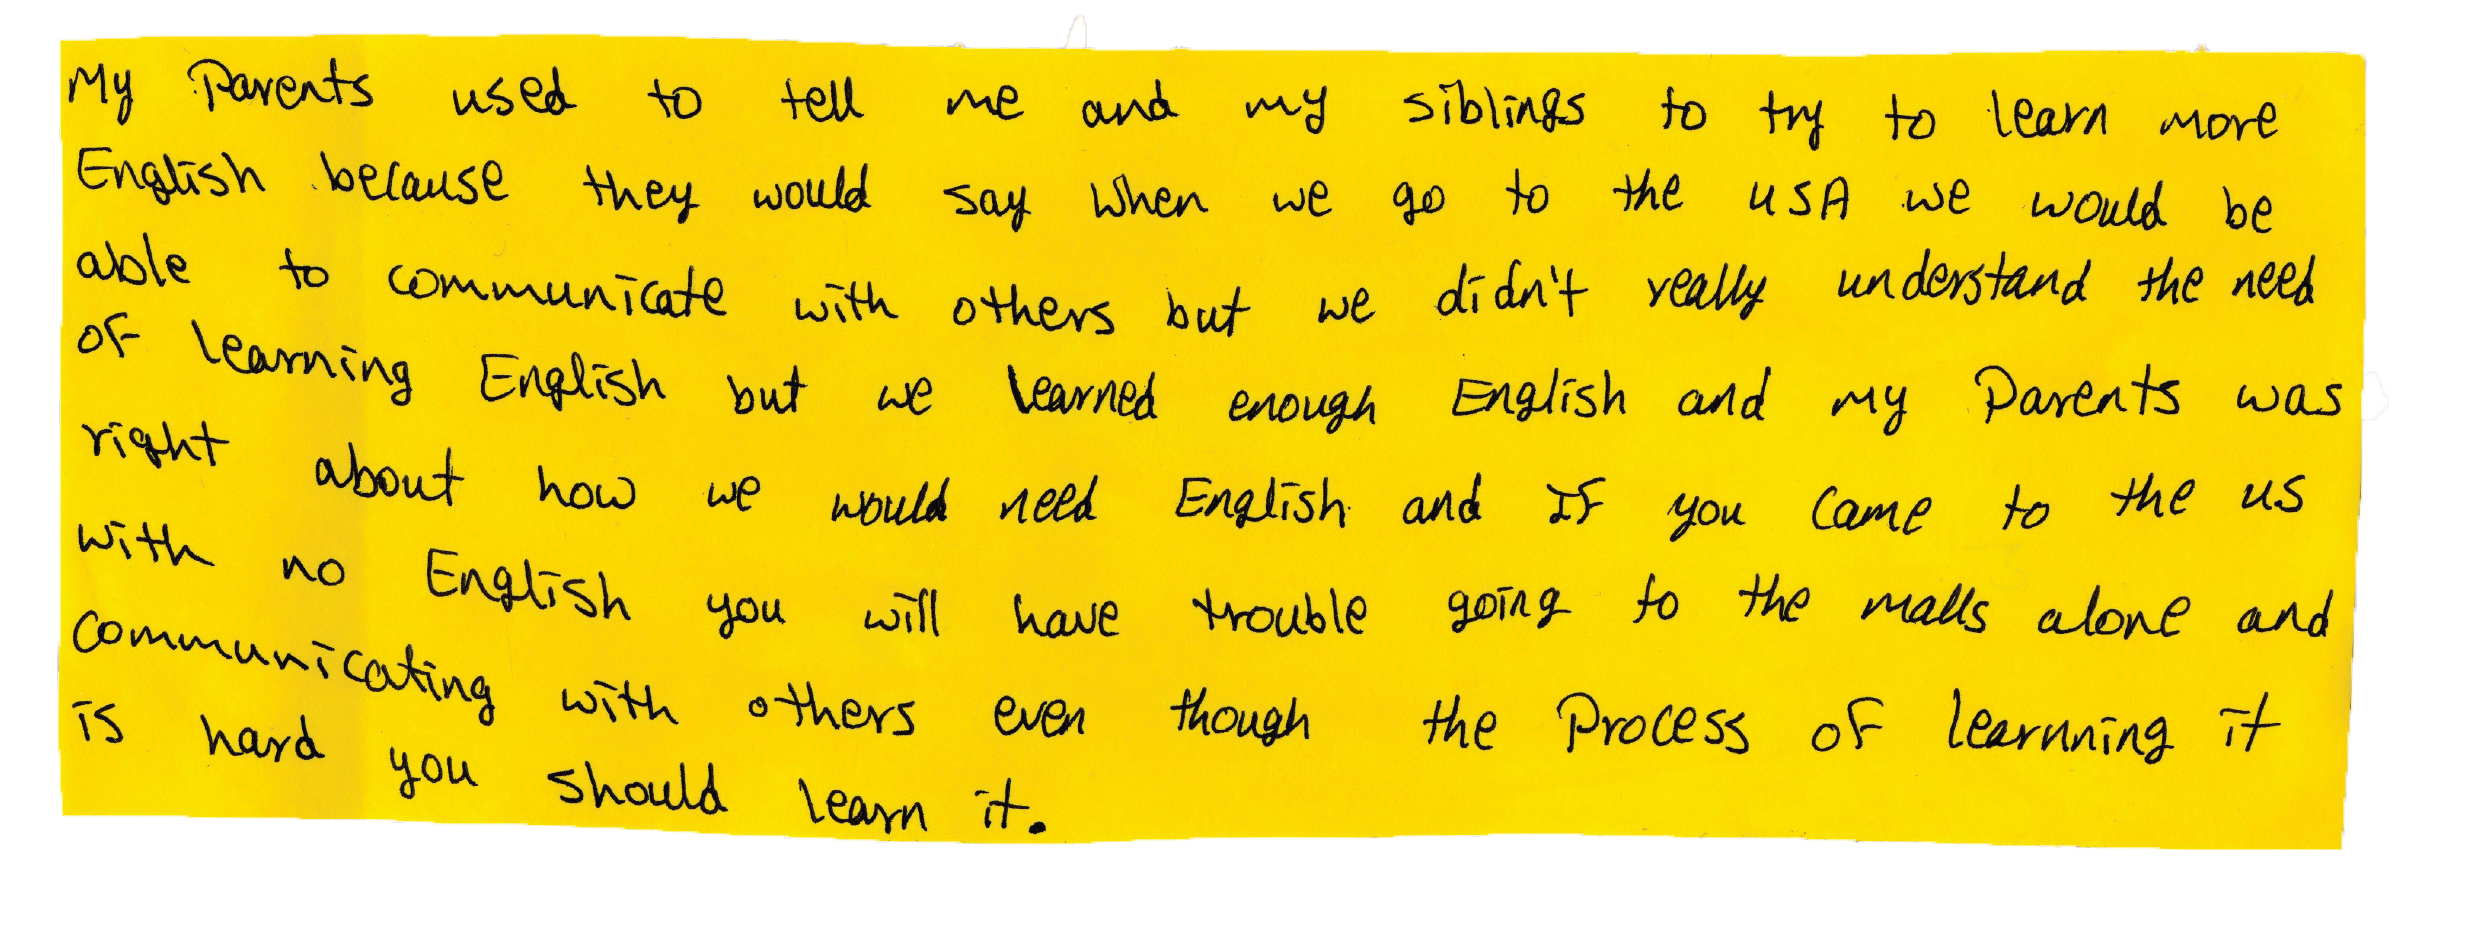 My Parents used to tell me and my siblings to try to learn more
English because they would say when we go to the USA we would be
able to communicate with others but we didn't really understand the need
of learning English but we learned enough English and my Parents was
right about how we would need English and If you came to the us
with no English you will have trouble going to the malls alone and
communicating with others even though the Process of learnning it
is hard you should learn it.